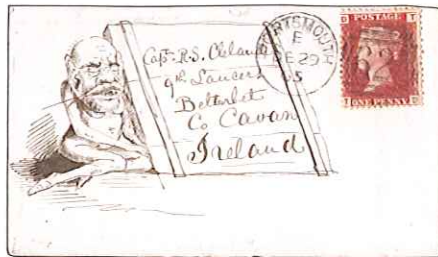 Capt. R. S. Cleland
9th Lancers
Belturbet
Co Cavan
Ireland
PORTSMOUTH
E
DE 29
5
D I
POSTAGE
I D
ONE PENNY